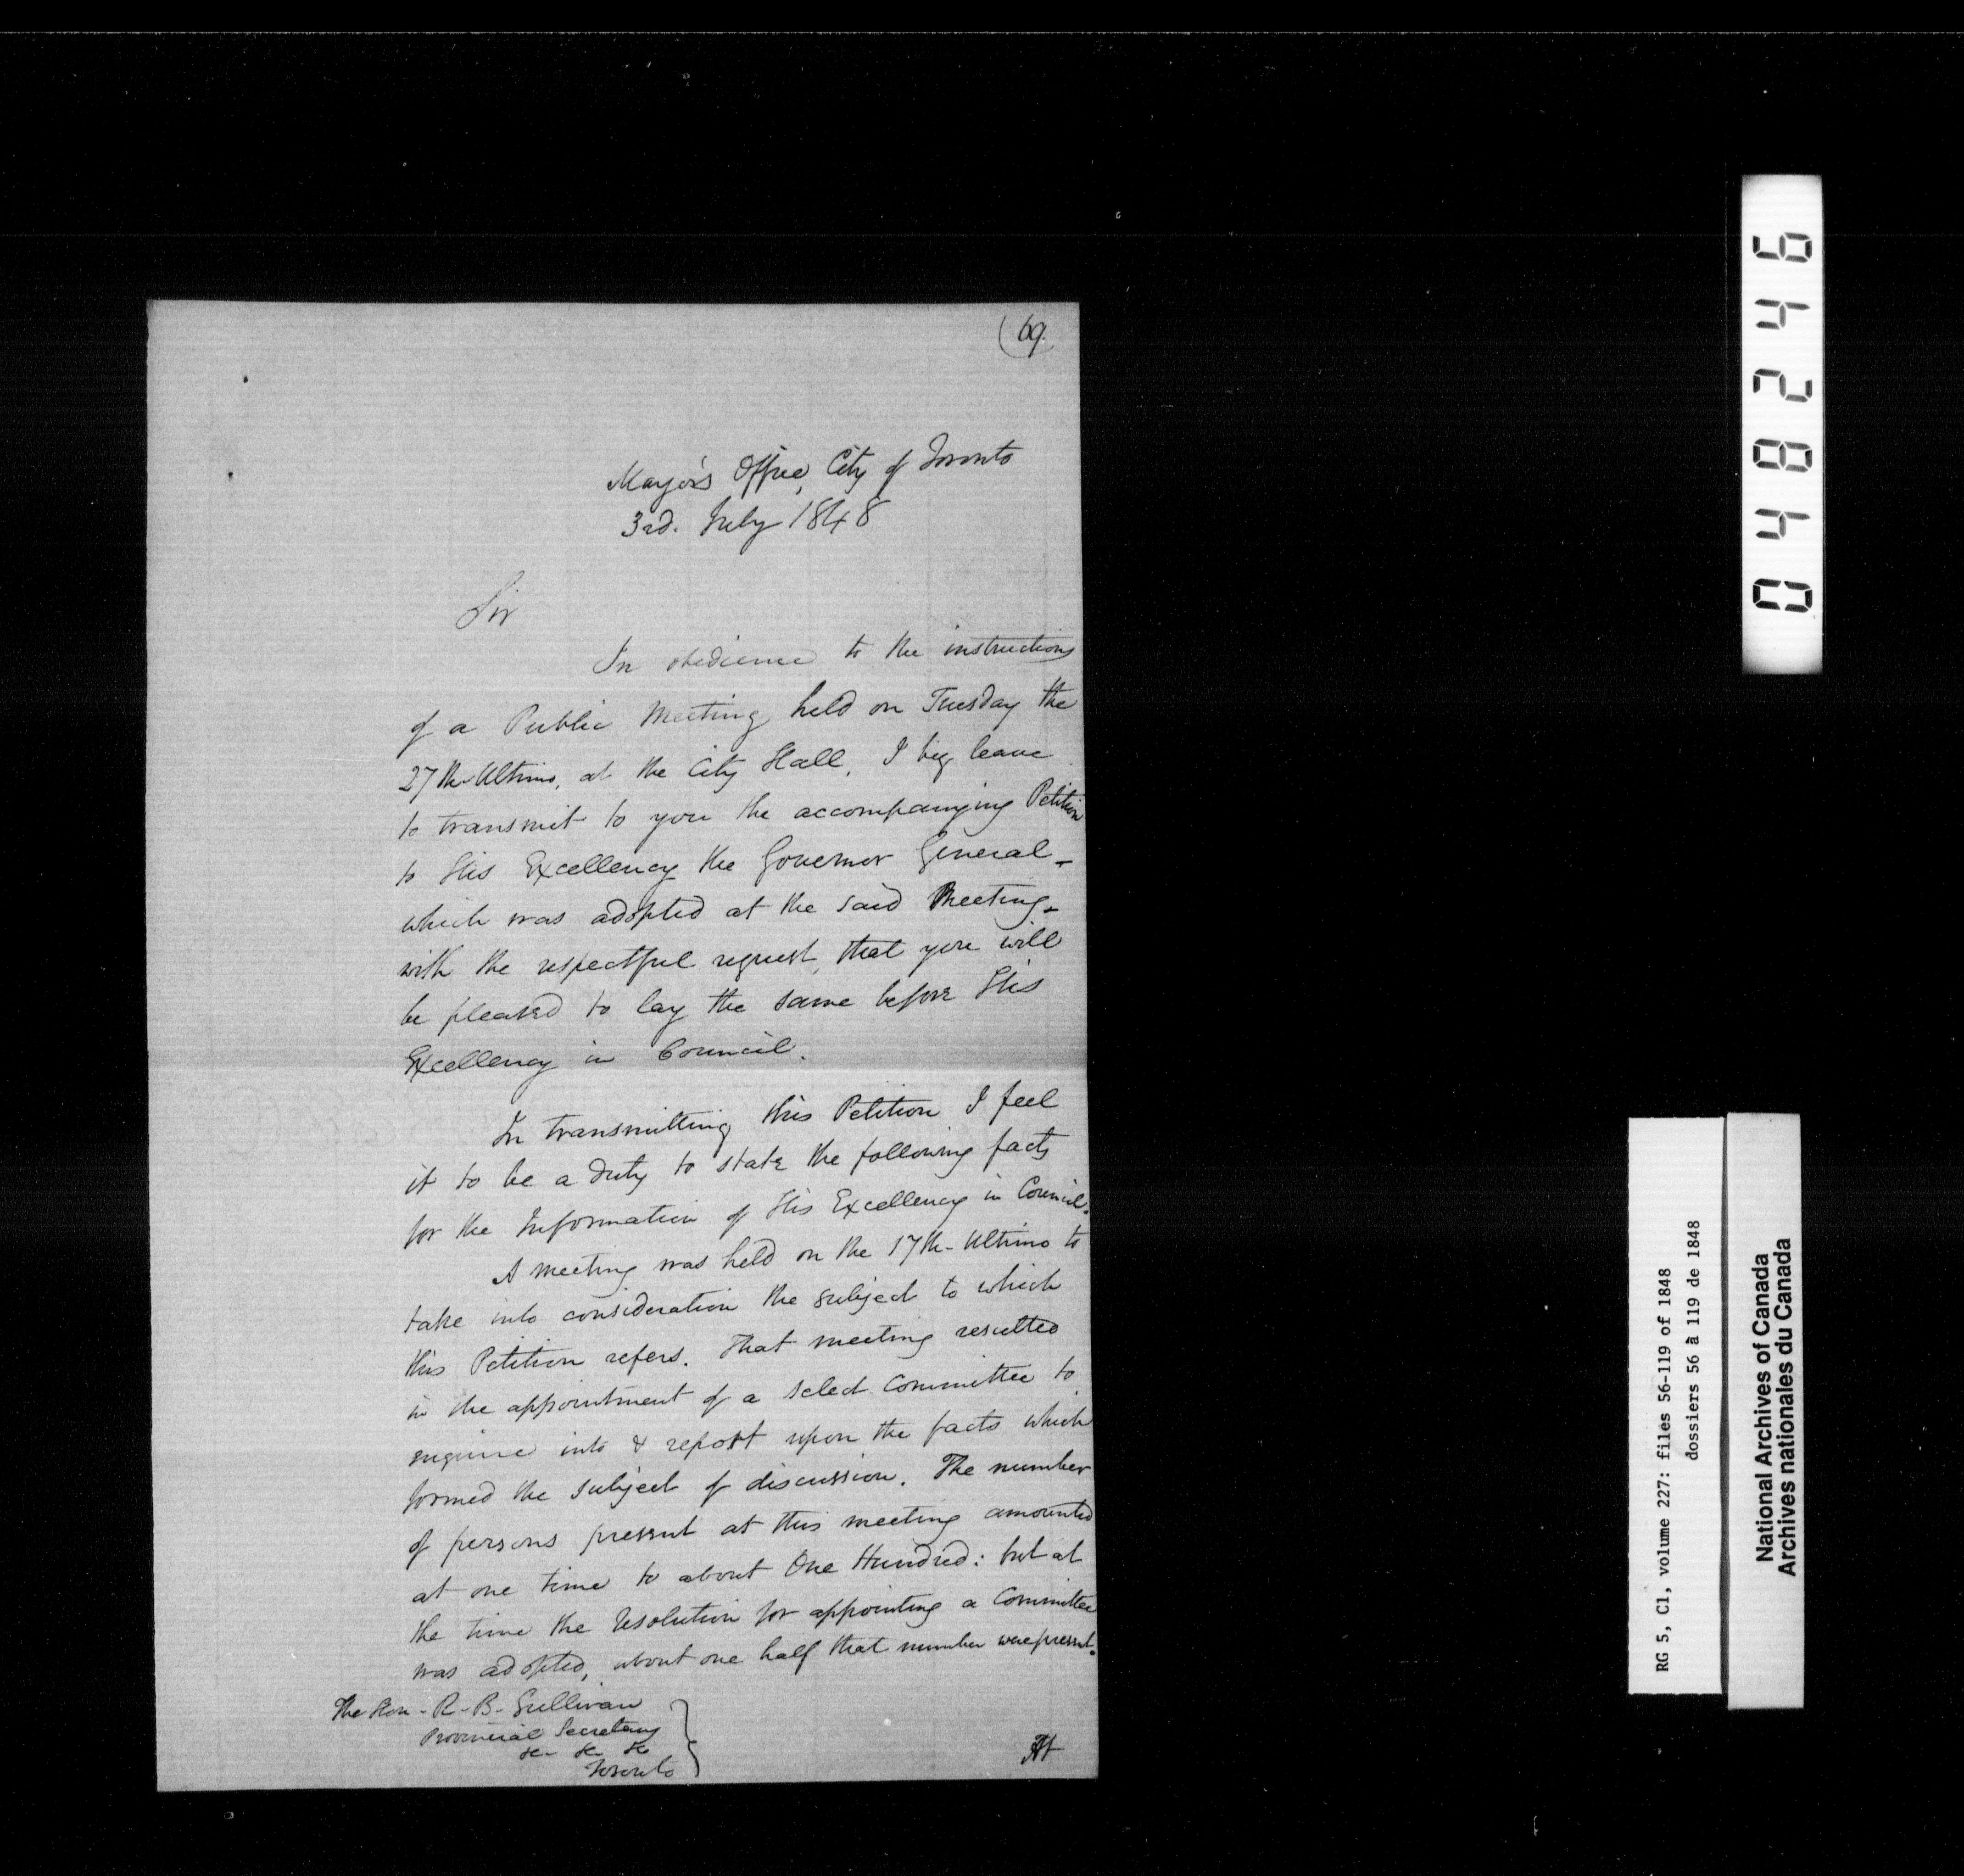 (69.
Mayor's Office, City of Toronto
3rd. July 1848
Sir
In obedience to the instructions
of a Public Meeting held on Tuesday the
27th Ultimo, at the City Hall, I beg leave
to transmit to you the accompanying Petition
to His Excellency the Governor General -
which was adopted at the said Meeting -
with the respectful request, that you will
be pleased to lay the same before His
Excellency in Council.
In transmitting this Petition I feel
it to be a duty to state the following facts
for the Information of His Excellency in Council.
A meeting was held on the 17th - Ultimo to
take into consideration the subject to which
this Petition refers. That meeting resulted
in the appointment of a select Committee to
enquire into & report upon the facts which
formed the subject of discussion. The number
of persons present at this meeting amounted
at one time to about One Hundred: but at
the time the resolution for appointing a Committee
was adopted, about one half that number were present.
The Hon - R - B - Sullivan
Provincial Secretary
&c - &c &c
Toronto
At
048246
RG 5, C1, volume 227: files 56-119 of 1848
dossiers 56 à 119 de 1848
National Archives of Canada
Archives nationales du Canada